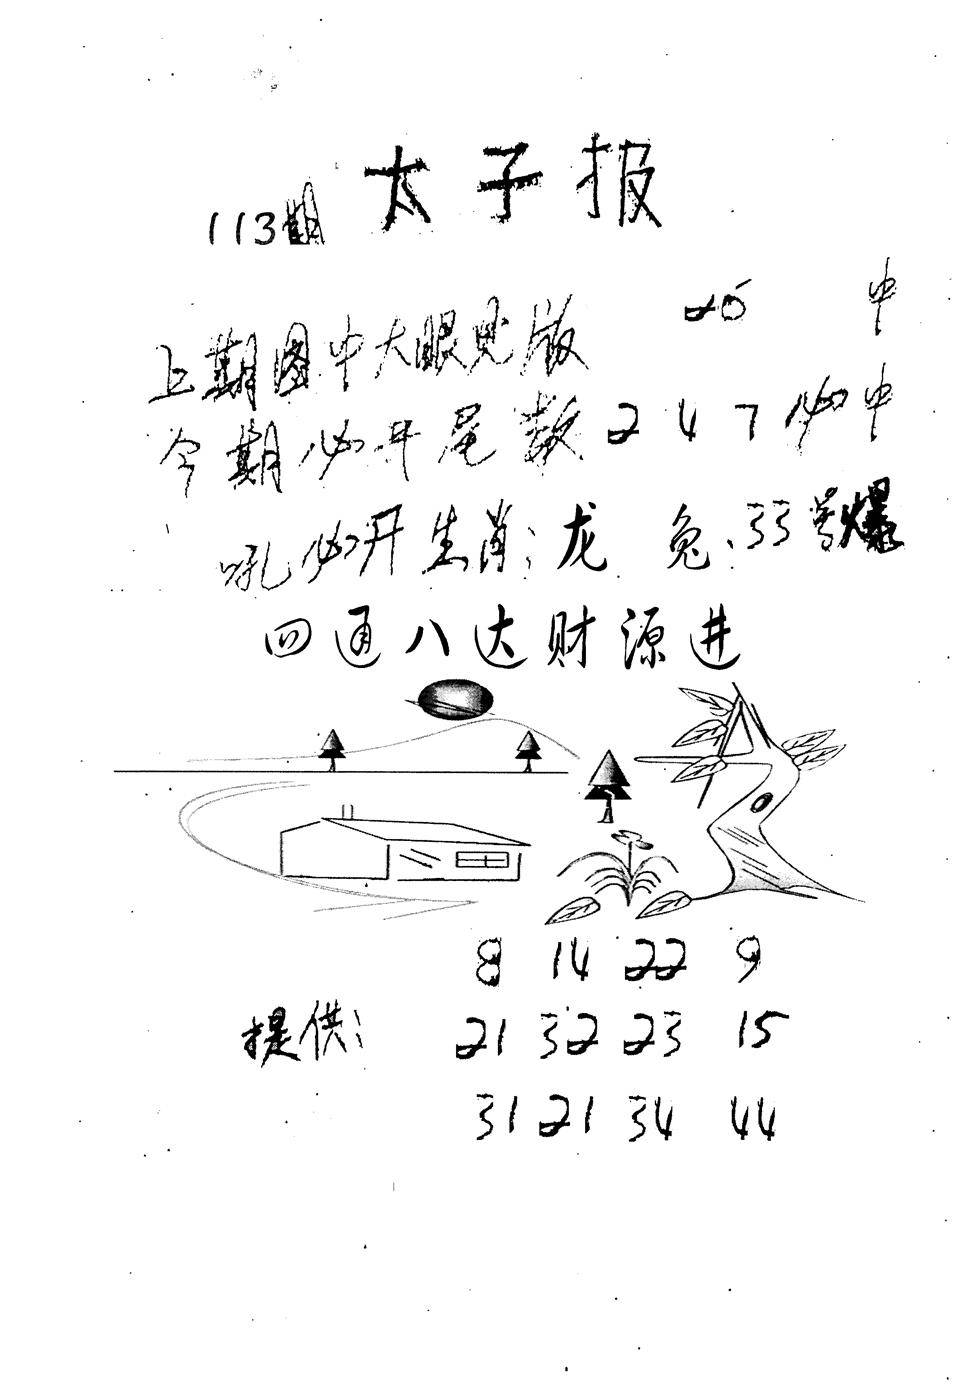 太子报
113期
上期图中大眼见版 25 中
今期必开尾数 2 4 7 必中
吼必开生肖：龙 兔、33号爆
四通八达财源进
8 14 22 9
提供： 21 32 23 15
31 21 34 44